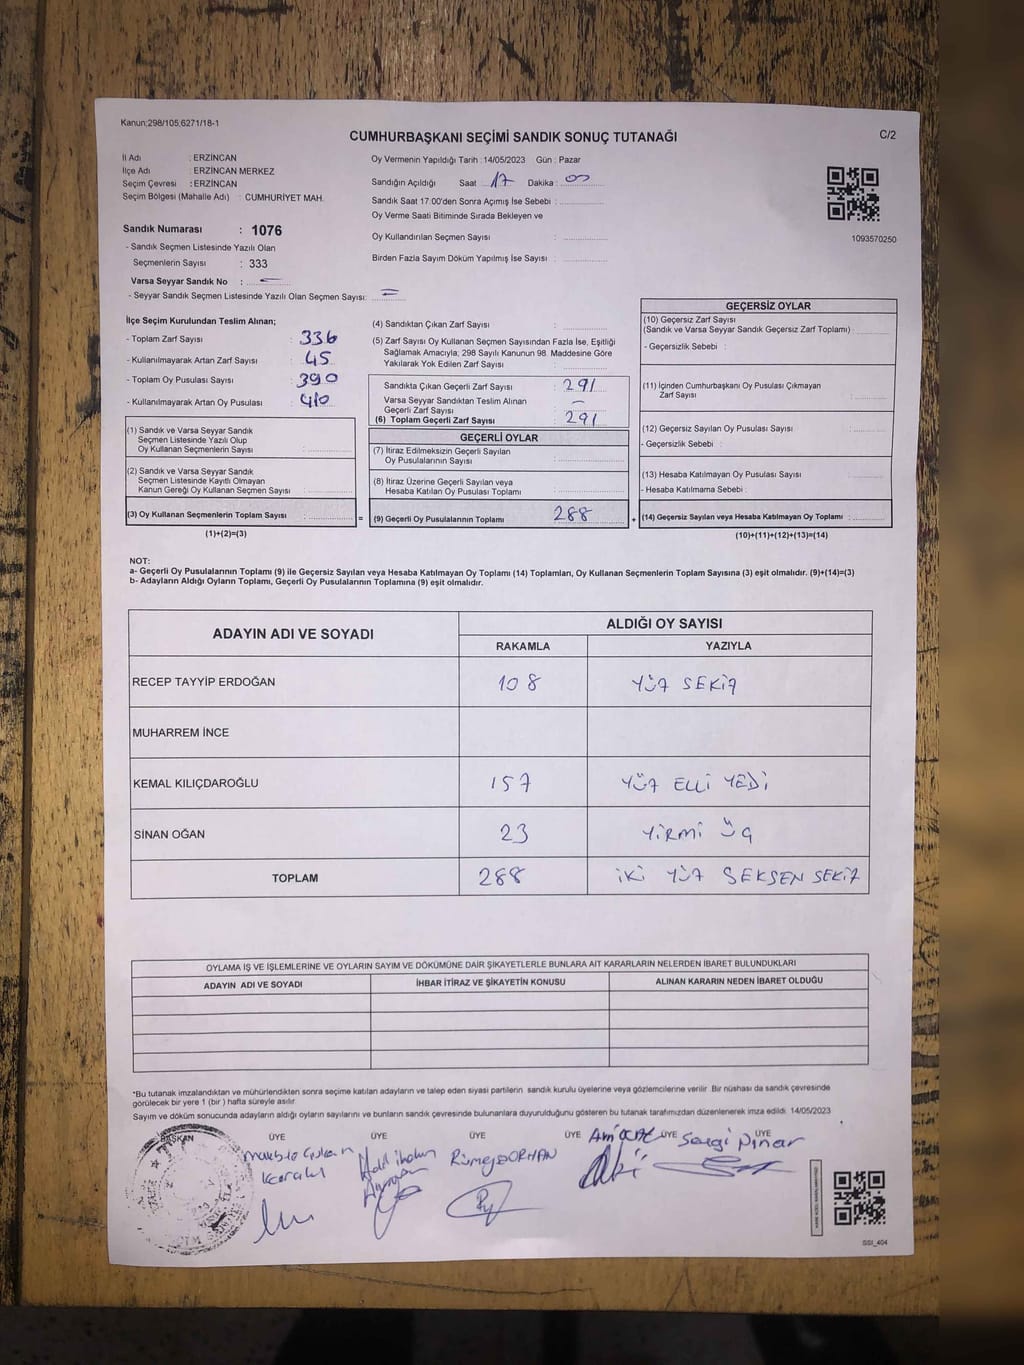 Kanun;298/105;6271/18-1
CUMHURBAŞKANI SEÇİMİ SANDIK SONUÇ TUTANAĞI
C/2
İl Adı : ERZİNCAN
İlçe Adı : ERZİNCAN MERKEZ
Seçim Çevresi : ERZİNCAN
Seçim Bölgesi (Mahalle Adı) : CUMHURİYET MAH.
Sandık Numarası : 1076
- Sandık Seçmen Listesinde Yazılı Olan
Seçmenlerin Sayısı : 333
Varsa Seyyar Sandık No : –
- Seyyar Sandık Seçmen Listesinde Yazılı Olan Seçmen Sayısı: =
Oy Vermenin Yapıldığı Tarih : 14/05/2023 Gün : Pazar
Sandığın Açıldığı Saat 17 Dakika : 00
Sandık Saat 17:00'den Sonra Açımış İse Sebebi :
Oy Verme Saati Bitiminde Sırada Bekleyen ve
Oy Kullandırılan Seçmen Sayısı :
Birden Fazla Sayım Döküm Yapılmış İse Sayısı :
1093570250
İlçe Seçim Kurulundan Teslim Alınan;
- Toplam Zarf Sayısı : 336
- Kullanılmayarak Artan Zarf Sayısı : 45
- Toplam Oy Pusulası Sayısı : 390
- Kullanılmayarak Artan Oy Pusulası : 410
(1) Sandık ve Varsa Seyyar Sandık
Seçmen Listesinde Yazılı Olup
Oy Kullanan Seçmenlerin Sayısı :
(2) Sandık ve Varsa Seyyar Sandık
Seçmen Listesinde Kayıtlı Olmayan
Kanun Gereği Oy Kullanan Seçmen Sayısı :
(3) Oy Kullanan Seçmenlerin Toplam Sayısı :
(1)+(2)=(3)
(4) Sandıktan Çıkan Zarf Sayısı :
(5) Zarf Sayısı Oy Kullanan Seçmen Sayısından Fazla İse, Eşitliği
Sağlamak Amacıyla; 298 Sayılı Kanunun 98. Maddesine Göre
Yakılarak Yok Edilen Zarf Sayısı :
Sandıkta Çıkan Geçerli Zarf Sayısı : 291
Varsa Seyyar Sandıktan Teslim Alınan
Geçerli Zarf Sayısı : –
(6) Toplam Geçerli Zarf Sayısı : 291
GEÇERLİ OYLAR
(7) İtiraz Edilmeksizin Geçerli Sayılan
Oy Pusulalarının Sayısı :
(8) İtiraz Üzerine Geçerli Sayılan veya
Hesaba Katılan Oy Pusulası Toplamı :
= (9) Geçerli Oy Pusulalarının Toplamı 288
GEÇERSİZ OYLAR
(10) Geçersiz Zarf Sayısı
(Sandık ve Varsa Seyyar Sandık Geçersiz Zarf Toplamı) :
- Geçersizlik Sebebi :
(11) İçinden Cumhurbaşkanı Oy Pusulası Çıkmayan
Zarf Sayısı :
(12) Geçersiz Sayılan Oy Pusulası Sayısı :
- Geçersizlik Sebebi :
(13) Hesaba Katılmayan Oy Pusulası Sayısı :
- Hesaba Katılmama Sebebi :
+ (14) Geçersiz Sayılan veya Hesaba Katılmayan Oy Toplamı :
(10)+(11)+(12)+(13)=(14)
NOT:
a- Geçerli Oy Pusulalarının Toplamı (9) ile Geçersiz Sayılan veya Hesaba Katılmayan Oy Toplamı (14) Toplamları, Oy Kullanan Seçmenlerin Toplam Sayısına (3) eşit olmalıdır. (9)+(14)=(3)
b- Adayların Aldığı Oyların Toplamı, Geçerli Oy Pusulalarının Toplamına (9) eşit olmalıdır.
ADAYIN ADI VE SOYADI
ALDIĞI OY SAYISI
RAKAMLA YAZIYLA
RECEP TAYYİP ERDOĞAN 108 YÜZ SEKİZ
MUHARREM İNCE
KEMAL KILIÇDAROĞLU 157 YÜZ ELLİ YEDİ
SİNAN OĞAN 23 YİRMİ ÜÇ
TOPLAM 288 İKİ YÜZ SEKSEN SEKİZ
OYLAMA İŞ VE İŞLEMLERİNE VE OYLARIN SAYIM VE DÖKÜMÜNE DAİR ŞİKAYETLERLE BUNLARA AİT KARARLARIN NELERDEN İBARET BULUNDUKLARI
ADAYIN ADI VE SOYADI İHBAR İTİRAZ VE ŞİKAYETİN KONUSU ALINAN KARARIN NEDEN İBARET OLDUĞU
*Bu tutanak imzalandıktan ve mühürlendikten sonra seçime katılan adayların ve talep eden siyasi partilerin sandık kurulu üyelerine veya gözlemcilerine verilir. Bir nüshası da sandık çevresinde
görülecek bir yere 1 (bir) hafta süreyle asılır.
Sayım ve döküm sonucunda adayların aldığı oyların sayılarını ve bunların sandık çevresinde bulunanlara duyurulduğunu gösteren bu tutanak tarafımızdan düzenlenerek imza edildi. 14/05/2023
BAŞKAN ÜYE ÜYE ÜYE ÜYE ÜYE ÜYE
Sevgi Pınar
SSI_404